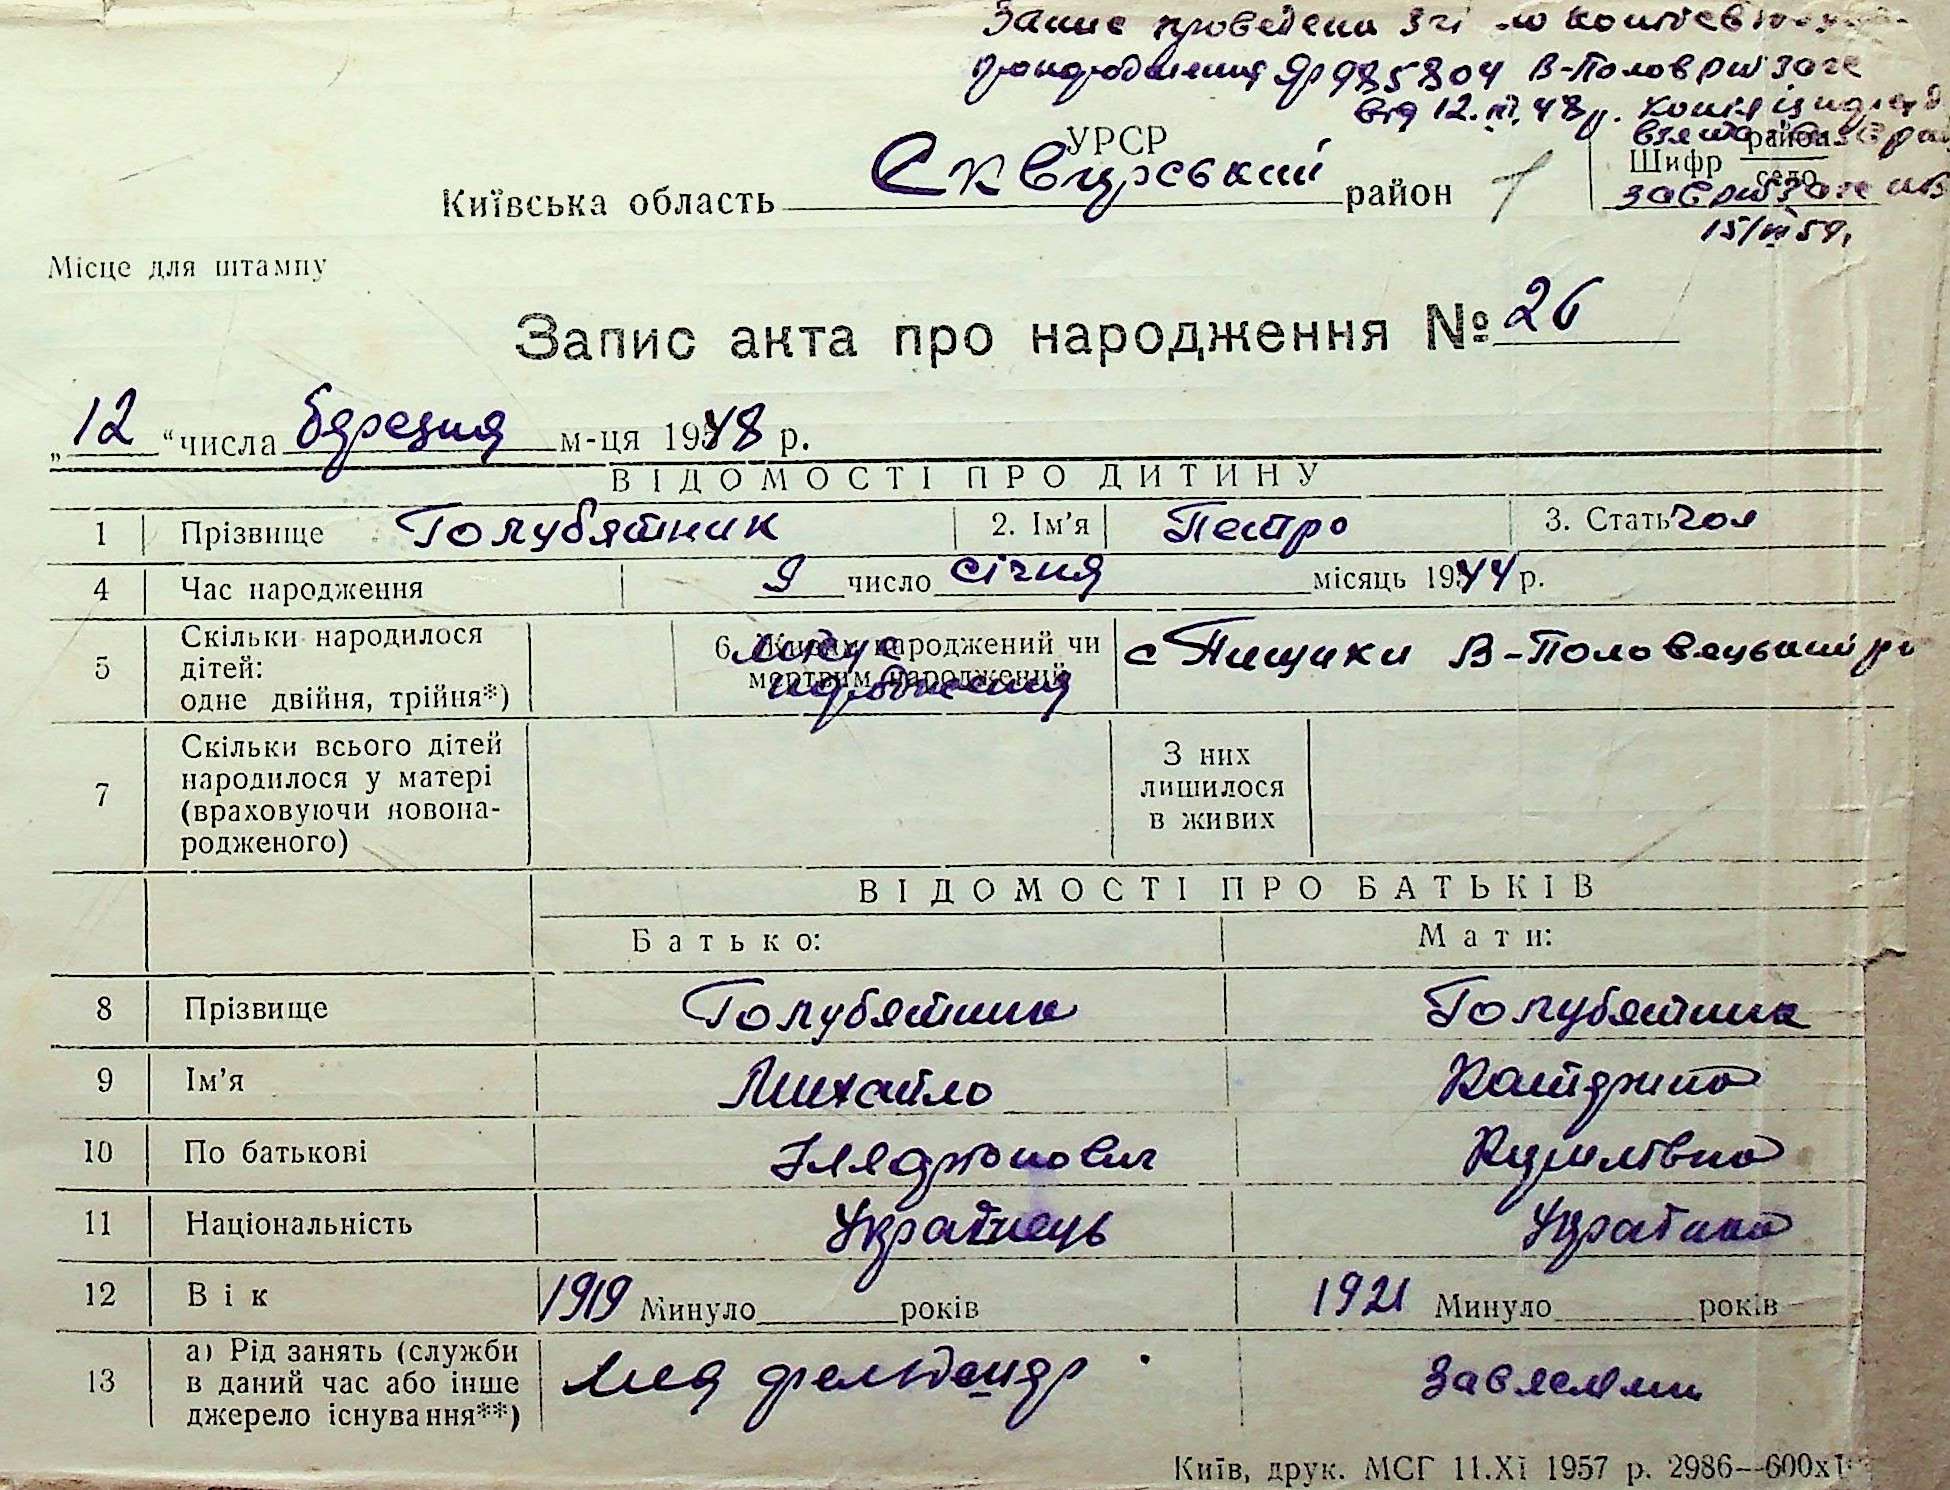 Запис проведено згі
ЯР 985804 В-Полов. РайЗАГС
від 12.III.48 р. копія
взята
УРСР
Київська область Сквирський район
Шифр района село
15/VI 59.
Місце для штампу
Запис акта про народження № 26
„12“ числа березня м-ця 1948 р.
ВІДОМОСТІ ПРО ДИТИНУ
1 Прізвище Голубятник 2. Ім’я Петро 3. Стать чол
4 Час народження 9 число січня місяць 1944 р.
5 Скільки народилося дітей: одне двійня, трійня*) 6. Живим народжений чи мертвим народжений місце народження с Пищики В-Половецький р-н
7 Скільки всього дітей народилося у матері (враховуючи новонародженого) З них лишилося в живих
ВІДОМОСТІ ПРО БАТЬКІВ
Батько: Мати:
8 Прізвище Голубятник Голубятник
9 Ім’я Михайло Катерина
10 По батькові Кирилівна
11 Національність Українець Українка
12 Вік 1919 Минуло років 1921 Минуло років
13 а) Рід занять (служби в даний час або інше джерело існування**) фельдшер Завяслями
Київ, друк. МСГ 11.XI 1957 р. 2986—600х1